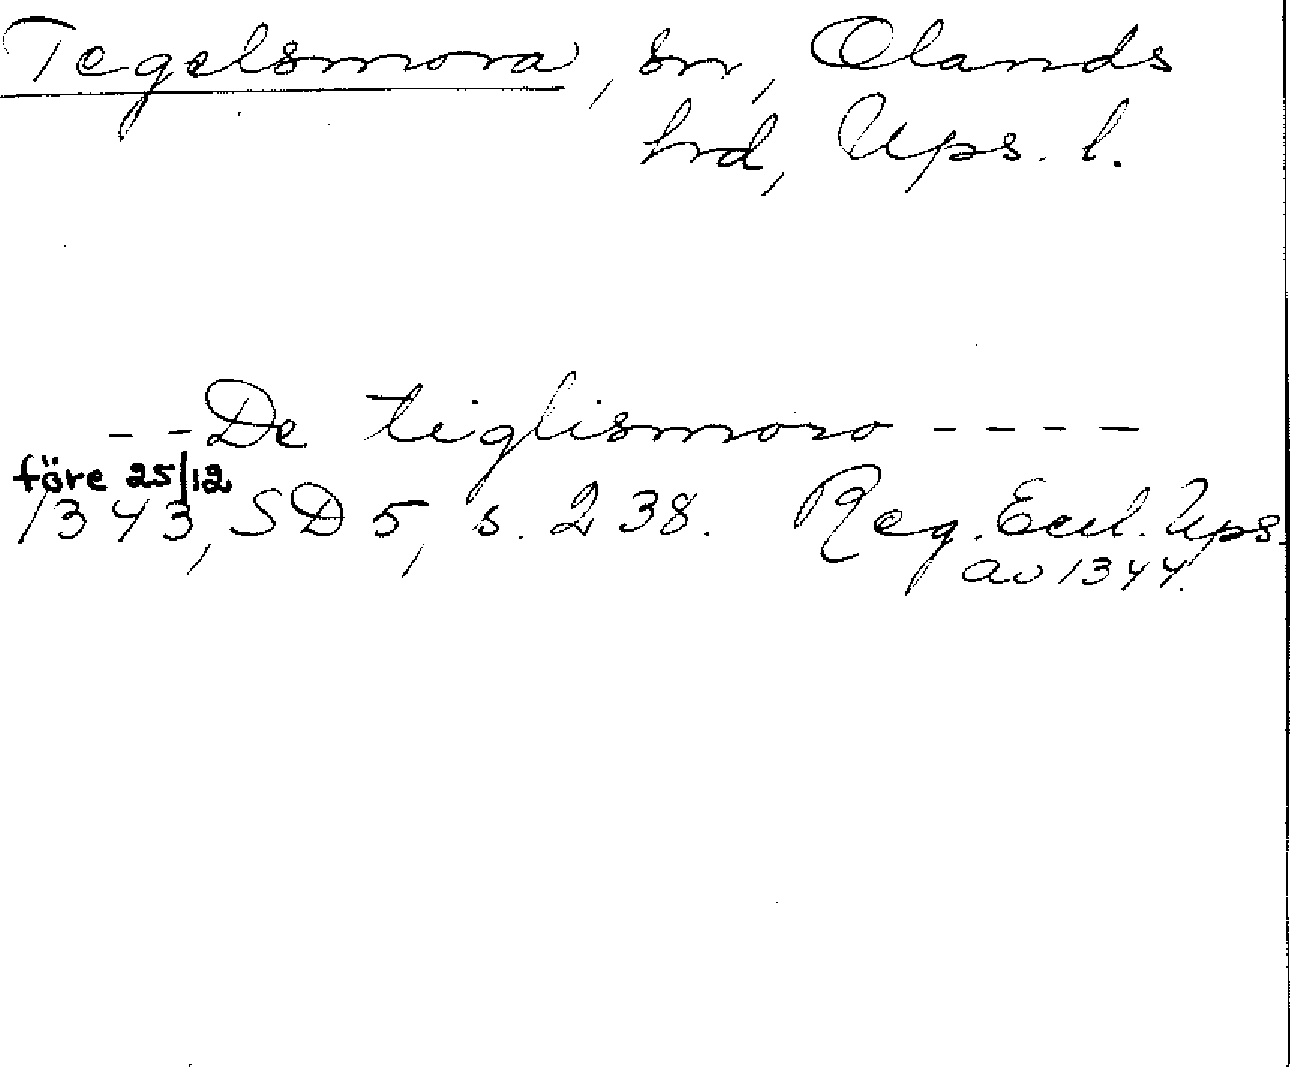 Tegelsmora, sn, Olands
hrd, Ups. l.
- - De tiglismoro - - - -
före 25/12
1343, SD 5, s. 238. Reg. Eccl. Ups.
av 1344.